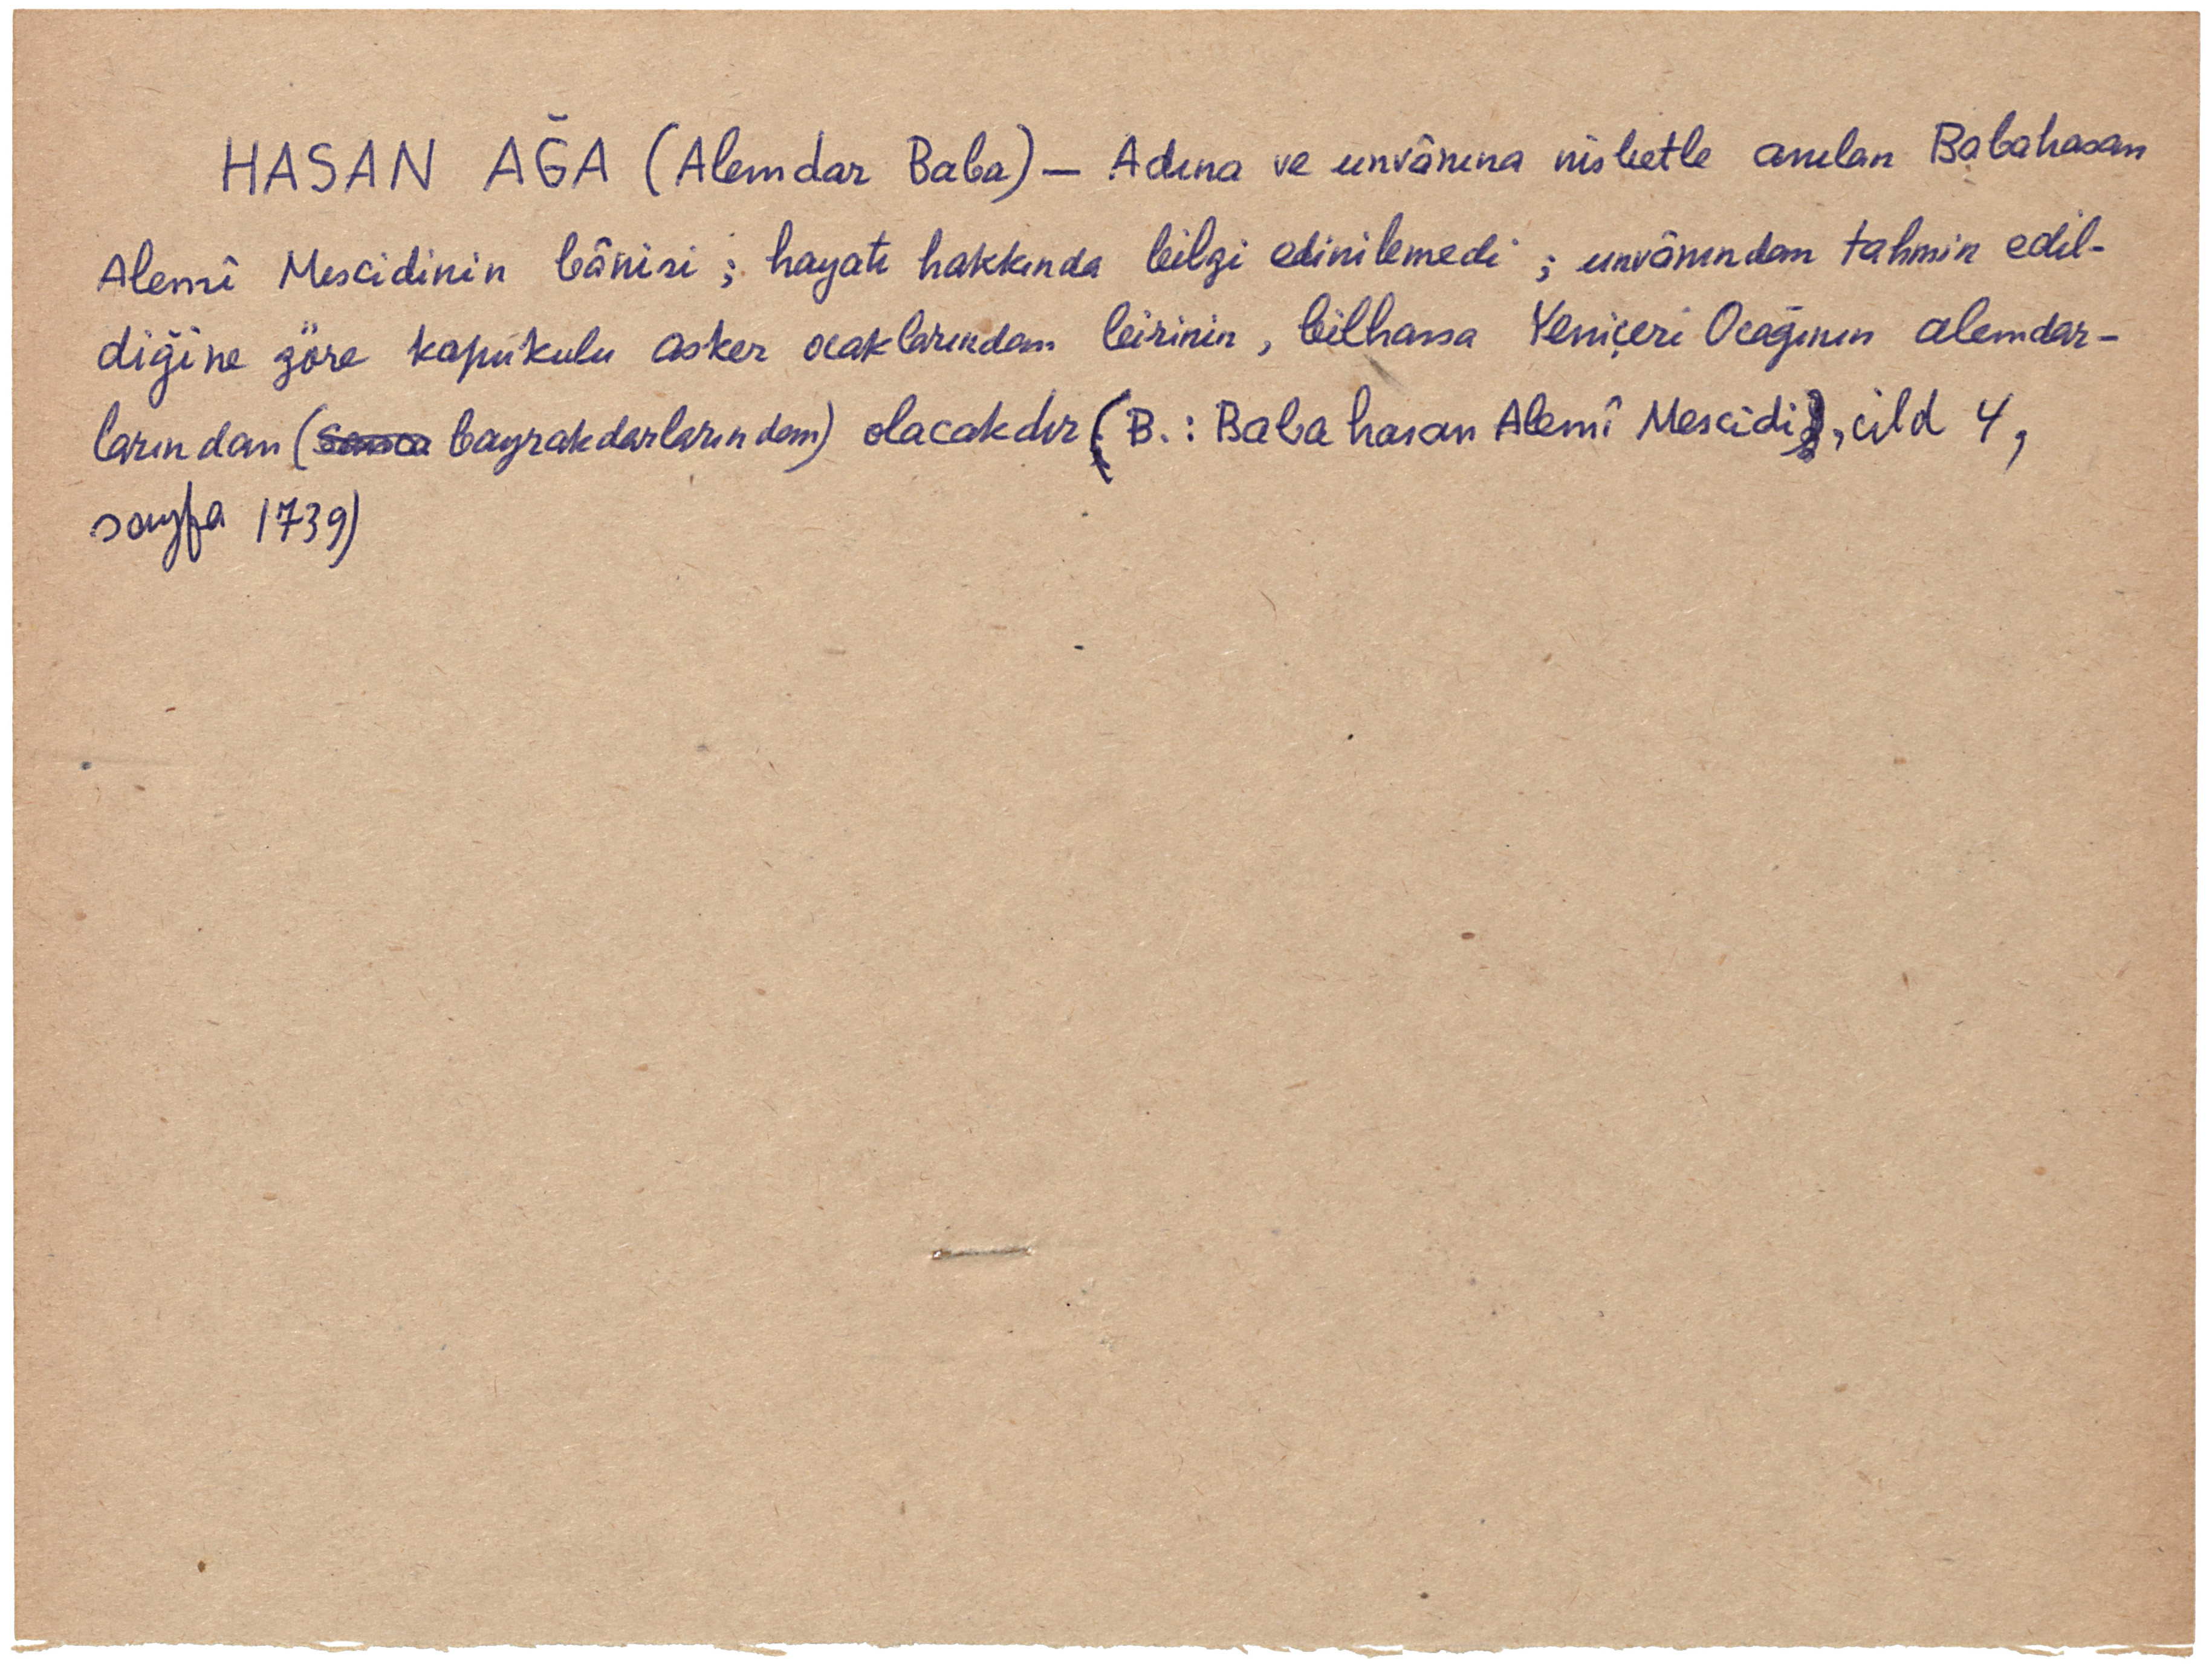 HASAN AĞA (Alemdar Baba) — Adına ve ünvânına nisbetle anılan Babahasan
Alemî Mescidinin bânisi ; hayatı hakkında bilgi edinilemedi ; ünvânından tahmin edil-
diğine göre kapukulu asker ocaklarından birinin , bilhassa Yeniçeri Ocağının alemdar-
larından ( bayrakdarlarından) olacakdır (B. : Babahasan Alemî Mescidi, cild 4,
sayfa 1739)